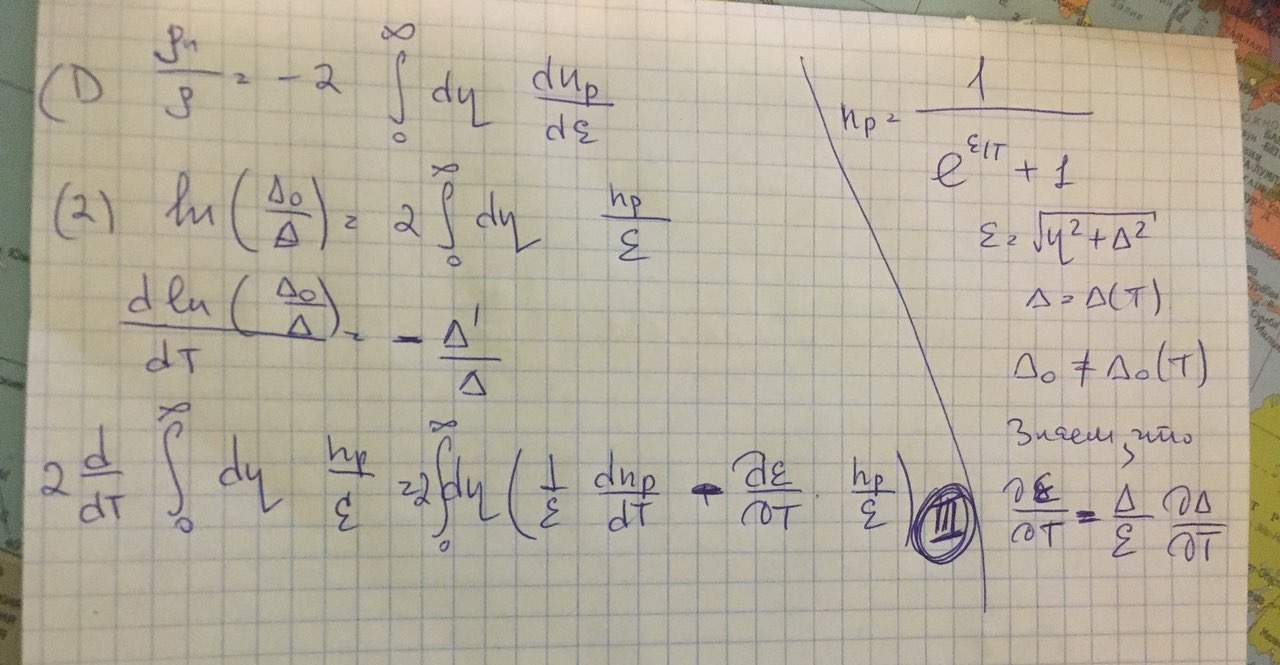 (1) ρₙ/ρ = -2 ∫₀^∞ dη dn_p/dε
(2) ln(Δ₀/Δ) = 2 ∫₀^∞ dη n_p/ε
d ln(Δ₀/Δ)/dT = - Δ'/Δ
2 d/dT ∫₀^∞ dη n_p/ε = 2∫₀^∞ dη (1/ε dn_p/dT - ∂ε/∂T · n_p/ε) III
n_p = 1/(e^{ε/T} + 1)
ε = √(η² + Δ²)
Δ = Δ(T)
Δ₀ ≠ Δ₀(T)
Знаем, что
∂ε/∂T = Δ/ε ∂Δ/∂T